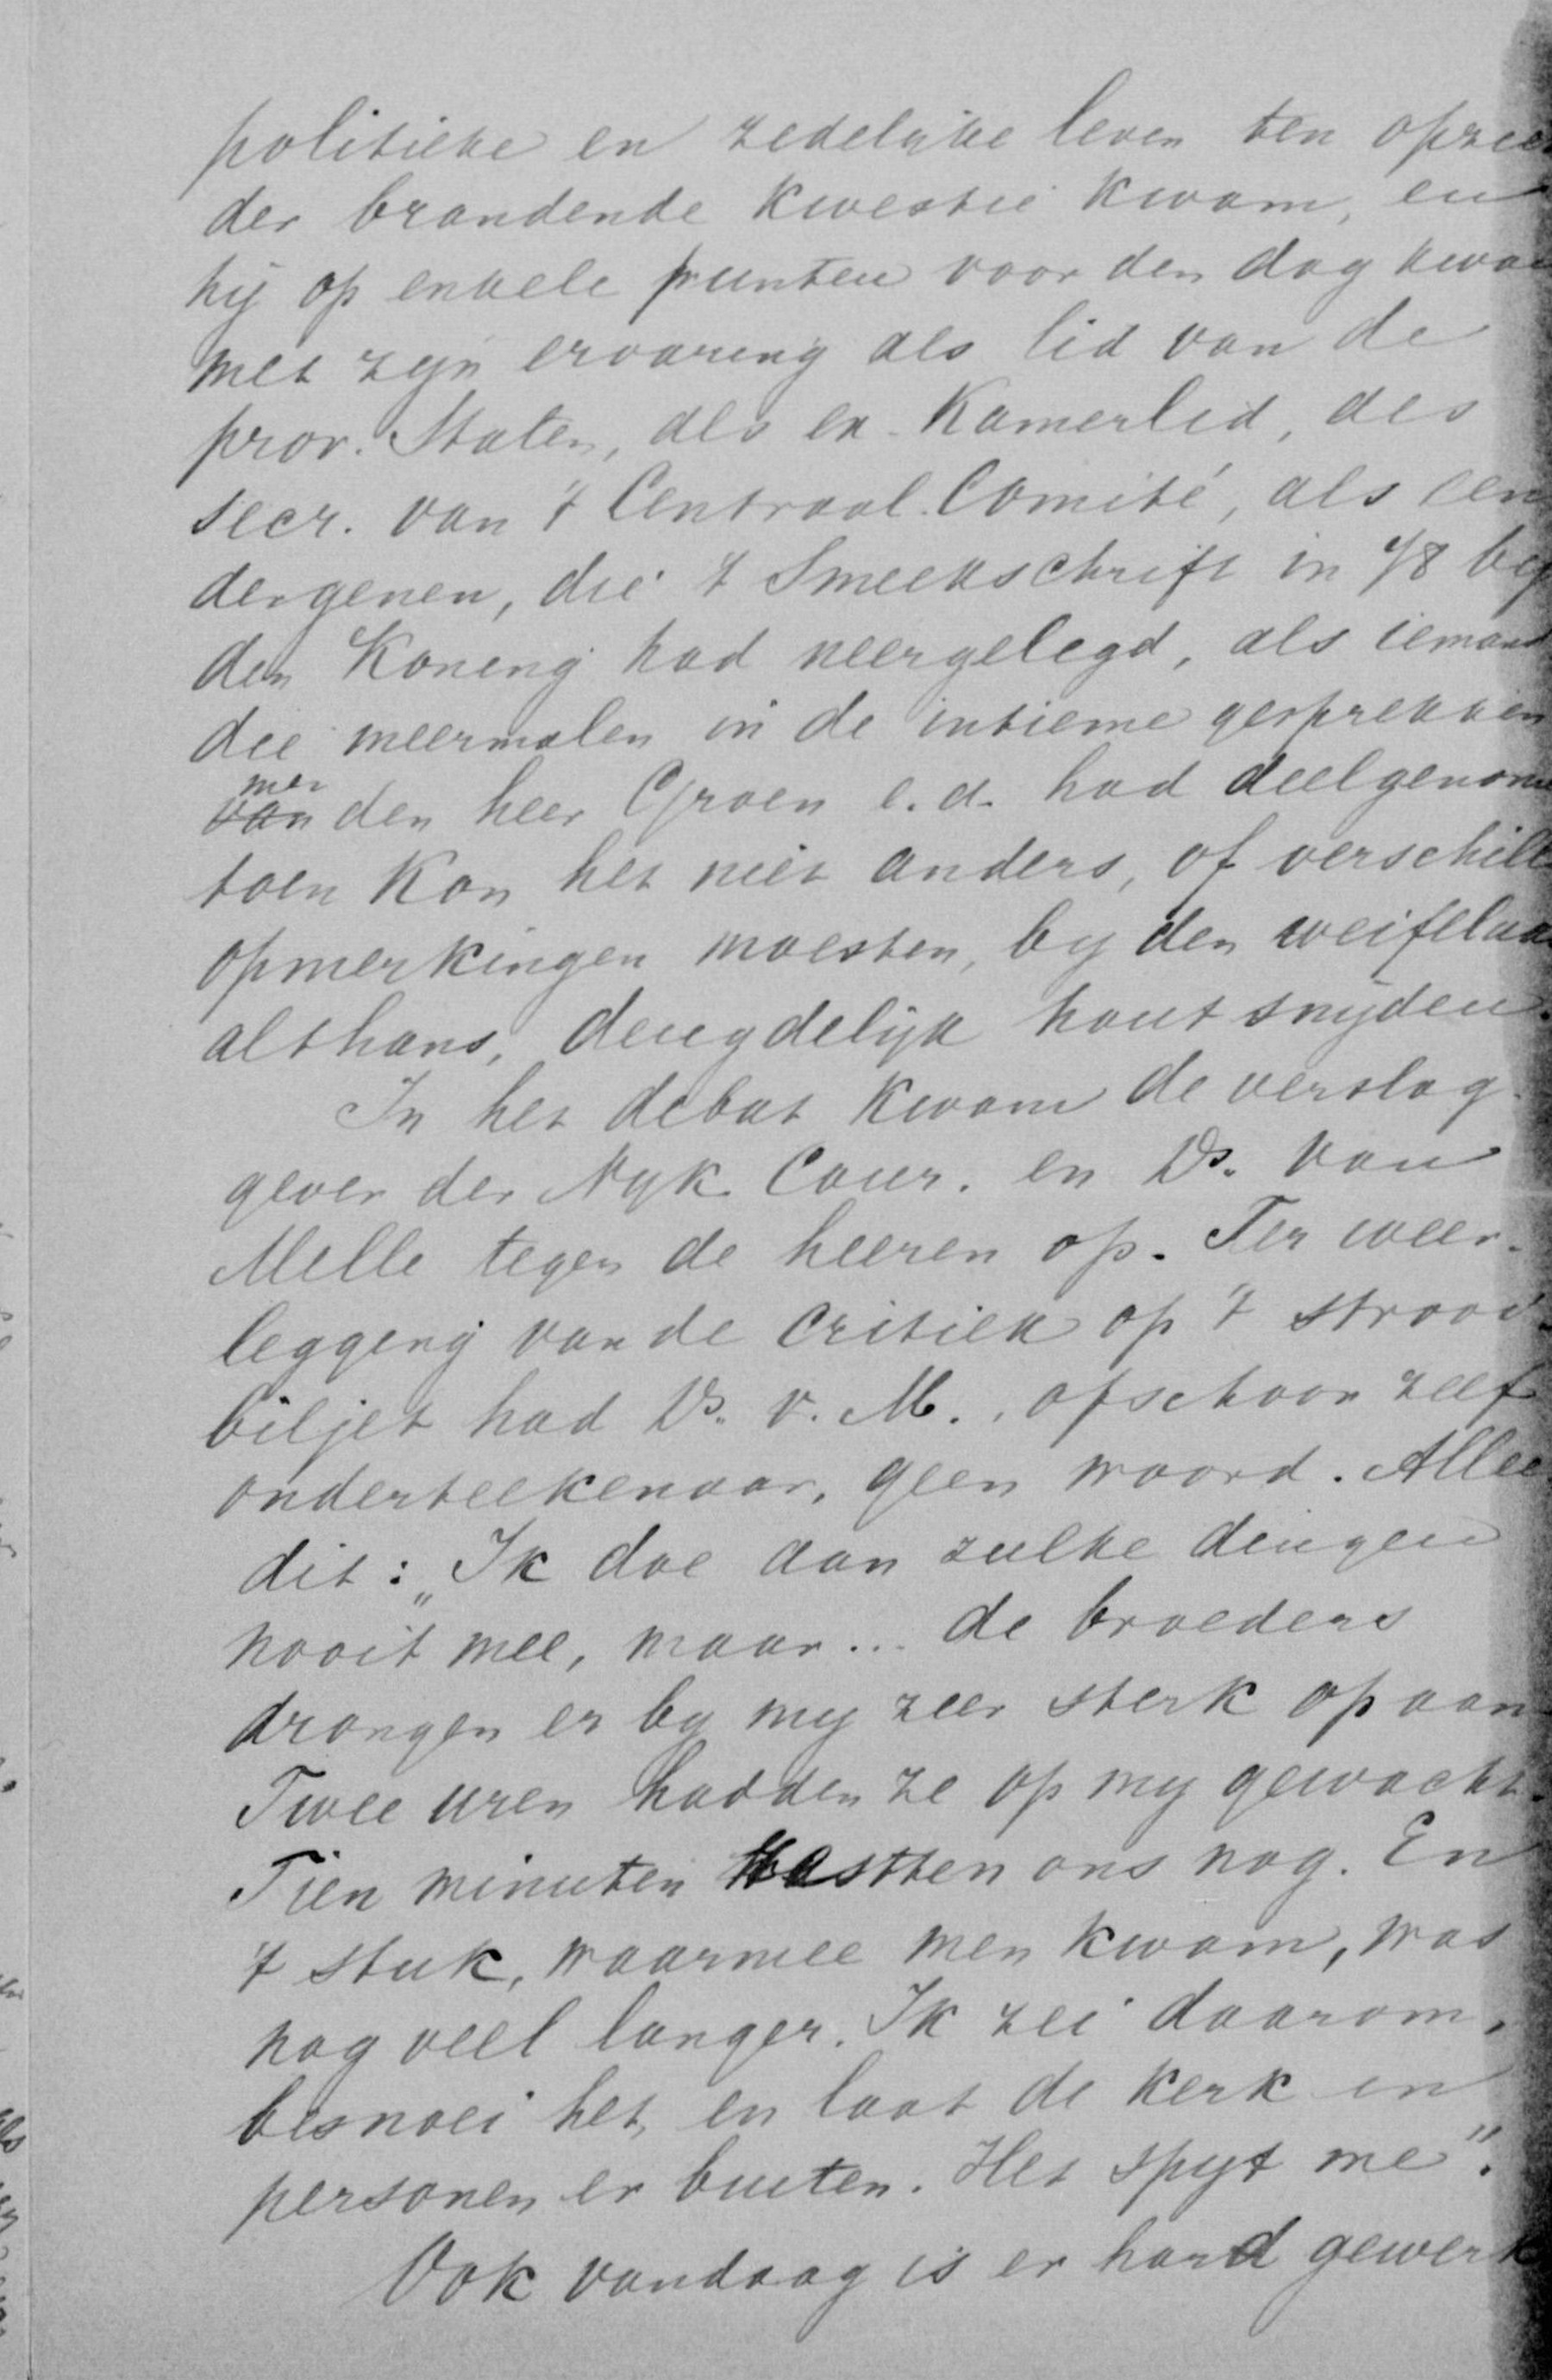 politieke en zedelijke leven ten opzee
der brandende kwestie kwam, en
hij op enkele punten voor den dag kwa
met zijn ervaring als lid van de
prov. Staten, als ex-Kamerlid, als
secr. van 't Centraal Comité, als een
dergenen, die 't Smeekschrift in 78 by
den Koning had neergelegd, als iemand
die meermalen in de intieme gesprekken
met
van den heer Groen e.a. had deelgenome
toen kon het niet anders, of verschille
opmerkingen moesten, by den weifelaa
althans, deugdelijk hout snijden.
In het debat kwam de verslag-
gever der Nyk. Cour. en Ds. van
Melle tegen de heeren op. Ter weer-
legging van de critiek op 't strooi-
biljet had Ds. v. M., ofschoon zelf
onderteekenaar, geen woord. Allee
dit: „Ik doe aan zulke dingen
nooit mee, maar... de broeders
drongen er by my zeer sterk op aan.
Twee uren hadden ze op my gewacht.
Tien minuten restten ons nog. En
't stuk, waarmee men kwam, was
nog veel langer. Ik zei daarom,
besnoei het, en laat de kerk en
personen er buiten. Het spyt me".
Ook vandaag is er hard gewerk